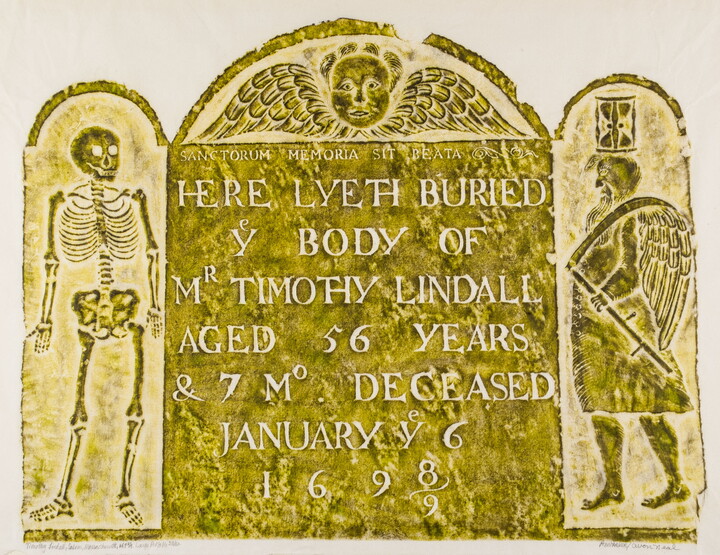 SANCTORUM MEMORIA SIT BEATA
HERE LYETH BURIED
yᵉ BODY OF
Mᴿ TIMOTHY LINDALL
AGED 56 YEARS
& 7 Mᵒ. DECEASED
JANUARY yᵉ 6
169 8/9
Timothy Lindall, Salem, Massachusetts,